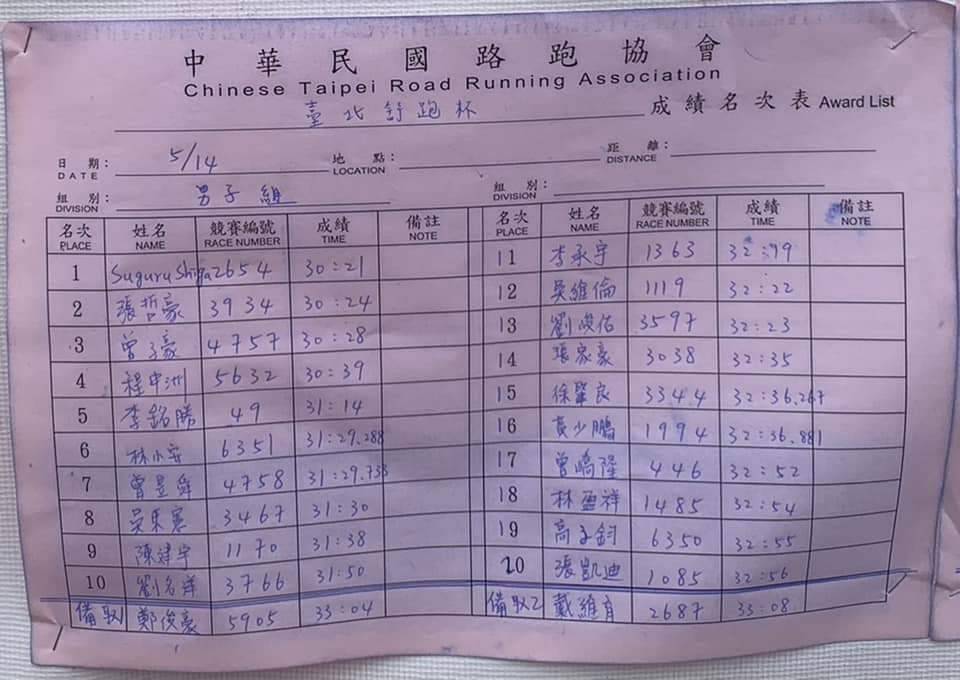 中華民國路跑協會
Chinese Taipei Road Running Association
臺北舒跑杯 成績名次表 Award List
日期: DATE 5/14 地點: LOCATION 距離: DISTANCE
組別: DIVISION 男子組 組別: DIVISION
名次 姓名 競賽編號 成績 備註 名次 姓名 競賽編號 成績 備註
PLACE NAME RACE NUMBER TIME NOTE PLACE NAME RACE NUMBER TIME NOTE
1 Suguru Shiga 2654 30:21 11 李承宇 1363 32:19
2 張哲豪 3934 30:24 12 吳維倫 1119 32:22
3 曾子豪 4757 30:28 13 劉峻佑 3597 32:23
4 程申洲 5632 30:39 14 張家豪 3038 32:35
5 李銘勝 49 31:14 15 徐肇良 3344 32:36.267
6 林小安 6351 31:29.288 16 黃少鵬 1994 32:36.881
7 曾昱舜 4758 31:29.733 17 曾嶠隆 446 32:52
8 3467 31:30 18 林盈祥 1485 32:54
9 陳建宇 1170 31:38 19 高子鈞 6350 32:55
10 劉名祥 3766 31:50 20 張凱迪 1085 32:56
備取1 鄭俊豪 5905 33:04 備取2 戴維育 2687 33:08